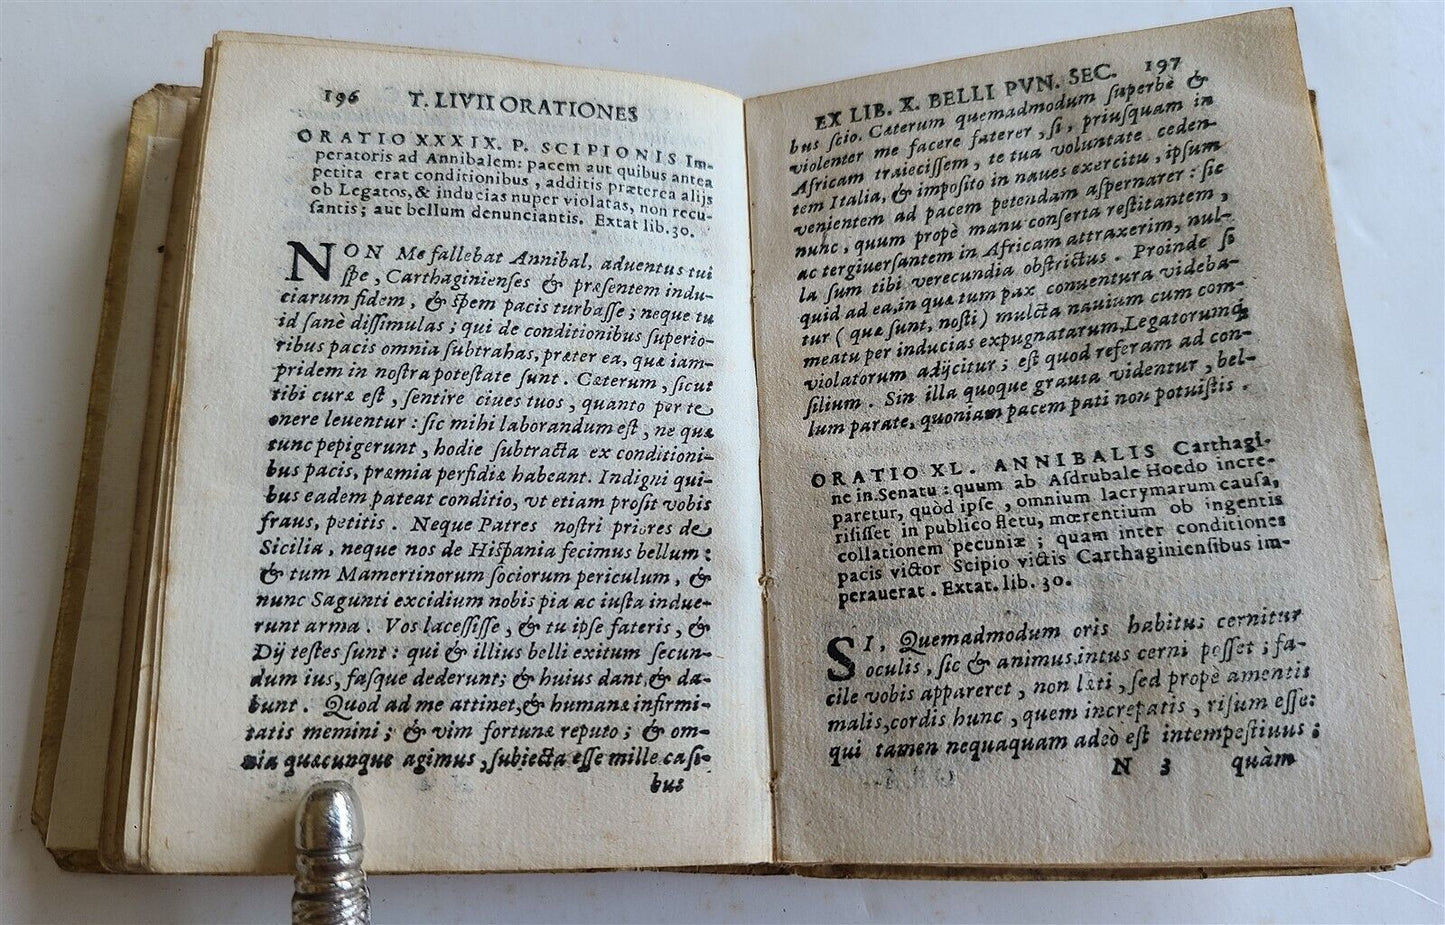 196 T. LIVII ORATIONES
ORATIO XXXIX. P. SCIPIONIS Im-
peratoris ad Annibalem: pacem aut quibus antea
petita erat conditionibus, additis præterea alijs
ob Legatos, & inducias nuper violatas, non recu-
ſantis; aut bellum denunciantis. Extat lib. 30.
NON Me fallebat Annibal, aduentus tui
ſpe, Carthaginienſes & præſentem indu-
ciarum fidem, & ſpem pacis turbaſſe; neque tu
id ſanè diſſimulas; qui de conditionibus ſuperio-
ribus pacis omnia ſubtrahas, præter ea, quæ iam-
pridem in noſtra poteſtate ſunt. Cæterum, ſicut
tibi curæ eſt, ſentire ciues tuos, quanto per te
onere leuentur: ſic mihi laborandum eſt, ne quæ
tunc pepigerunt, hodie ſubtracta ex conditioni-
bus pacis, præmia perfidiæ habeant. Indigni qui-
bus eadem pateat conditio, vt etiam proſit vobis
fraus, petitis. Neque Patres noſtri priores de
Sicilia, neque nos de Hiſpania fecimus bellum:
& tum Mamertinorum ſociorum periculum, &
nunc Sagunti excidium nobis pia ac iuſta indue-
runt arma. Vos laceſſiſſe, & tu ipſe fateris, &
Dij teſtes ſunt: qui & illius belli exitum ſecun-
dum ius, faſque dederunt; & huius dant, & da-
bunt. Quod ad me attinet, & humanæ infirmi-
tatis memini; & vim fortunæ reputo; & om-
nia quæcunque agimus, ſubiecta eſſe mille caſi-
bus
EX LIB. X. BELLI PVN. SEC. 197
bus ſcio. Cæterum quemadmodum ſuperbè &
violenter me facere faterer, ſi, priuſquam in
Africam traieciſſem, te tua voluntate ceden-
tem Italia, & impoſito in naues exercitu, ipſum
venientem ad pacem petendam aſpernarer: ſic
nunc, quum propè manu conſerta reſtitantem,
ac tergiuerſantem in Africam attraxerim, nul-
la ſum tibi verecundia obſtrictus. Proinde ſi
quid ad ea, in quæ tum pax conuentura videba-
tur (quæ ſunt, noſti) mulcta nauium cum com-
meatu per inducias expugnatarum, Legatorumq́;
violatorum adijcitur; eſt quod referam ad con-
ſilium. Sin illa quoque grauia videntur, bel-
lum parate, quoniam pacem pati non potuiſtis.
ORATIO XL. ANNIBALIS Carthagi-
ne in Senatu: quum ab Aſdrubale Hoedo incre-
paretur, quòd ipſe, omnium lacrymarum cauſa,
riſiſſet in publico fletu, mœrentium ob ingentis
collationem pecuniæ; quam inter conditiones
pacis victor Scipio victis Carthaginienſibus im-
perauerat. Extat. lib. 30.
SI, Quemadmodum oris habitus cernitur
oculis, ſic & animus intus cerni poſſet; fa-
cile vobis appareret, non læti, ſed propè amentis
malis, cordis hunc, quem increpatis, riſum eſſe:
qui tamen nequaquam adeò eſt intempeſtiuus;
N 3 quàm